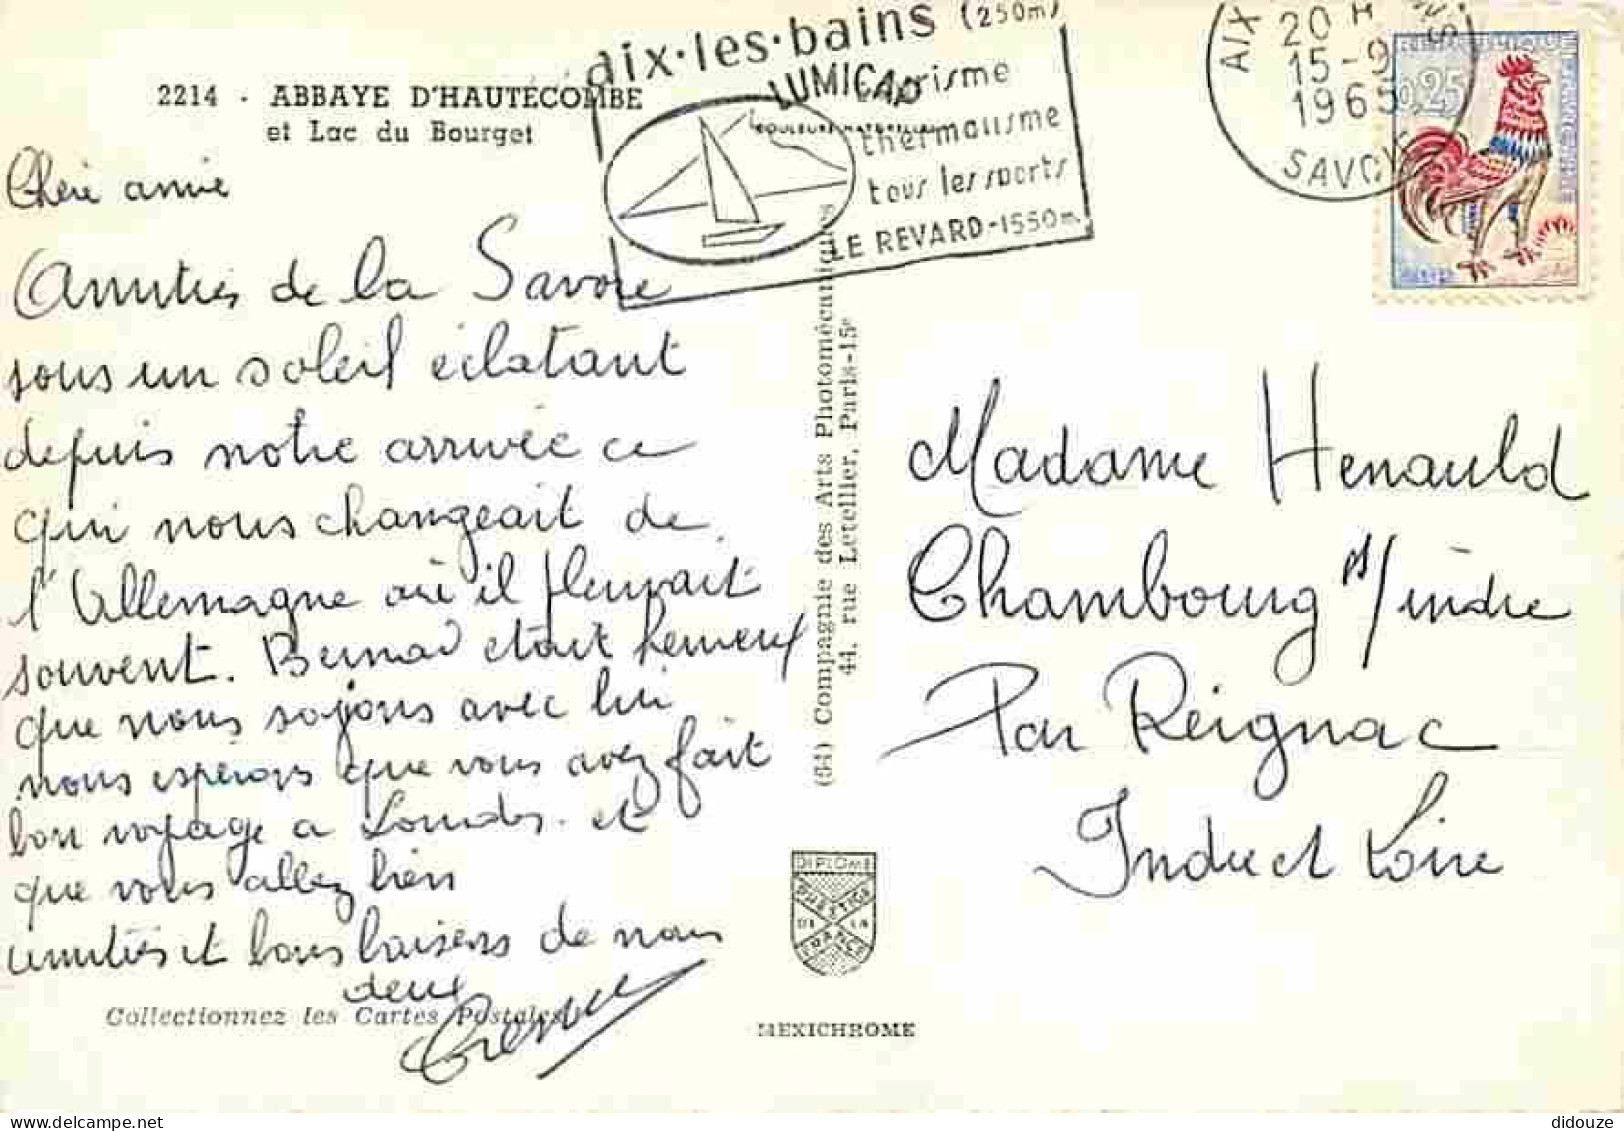 2214 - ABBAYE D'HAUTECOMBE
et Lac du Bourget
aix·les·bains (250m)
LUMICAP
COULEURS NATURELLES
thermalisme
tous les sports
LE REVARD-1550m
AIX
20 H
15-9
1965
SAVOIE
REPUBLIQUE FRANCAISE
0,25
Chère amie
Amitiés de la Savoie
sous un soleil éclatant
depuis notre arrivée ce
qui nous changeait de
l'Allemagne où il pleuvait
souvent. Bernard était heureux
que nous soyons avec lui
nous espérons que vous avez fait
bon voyage a Lourdes. et
que vous allez bien
amitiés et bons baisers de nous
deux
Madame Henauld
Chambourg s/indre
Par Reignac
Indre et Loire
(54) Compagnie des Arts Photomécaniques
44, rue Letellier, Paris-15e
DIPLOME
PRESTIGE
DE LA
FRANCE
Collectionnez les Cartes Postales
MEXICHROME
didouze